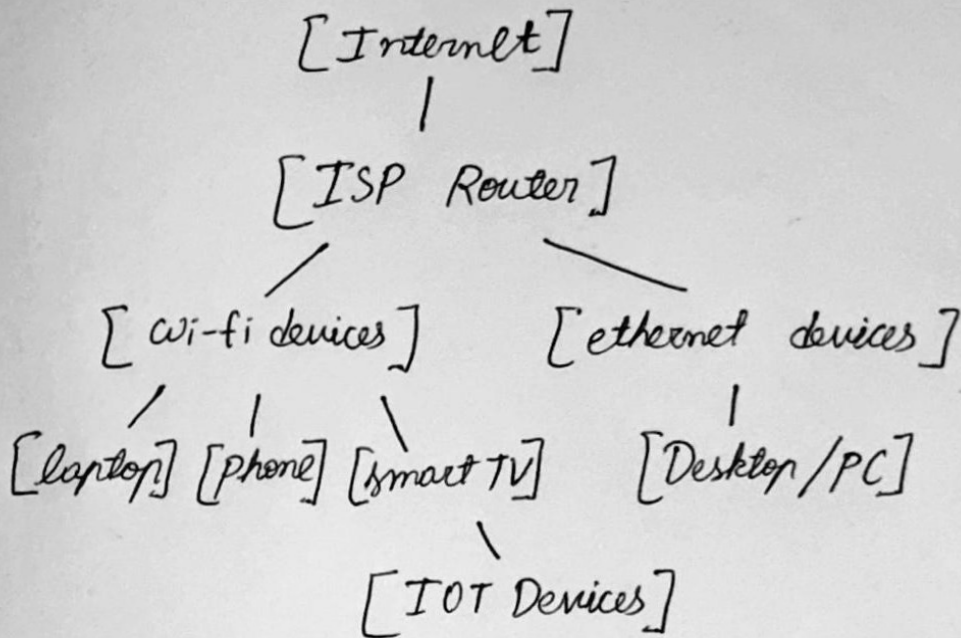 [Internet]
[ISP Router]
[wi-fi devices] [ethernet devices]
[laptop] [phone] [smart TV] [Desktop/PC]
[IOT Devices]